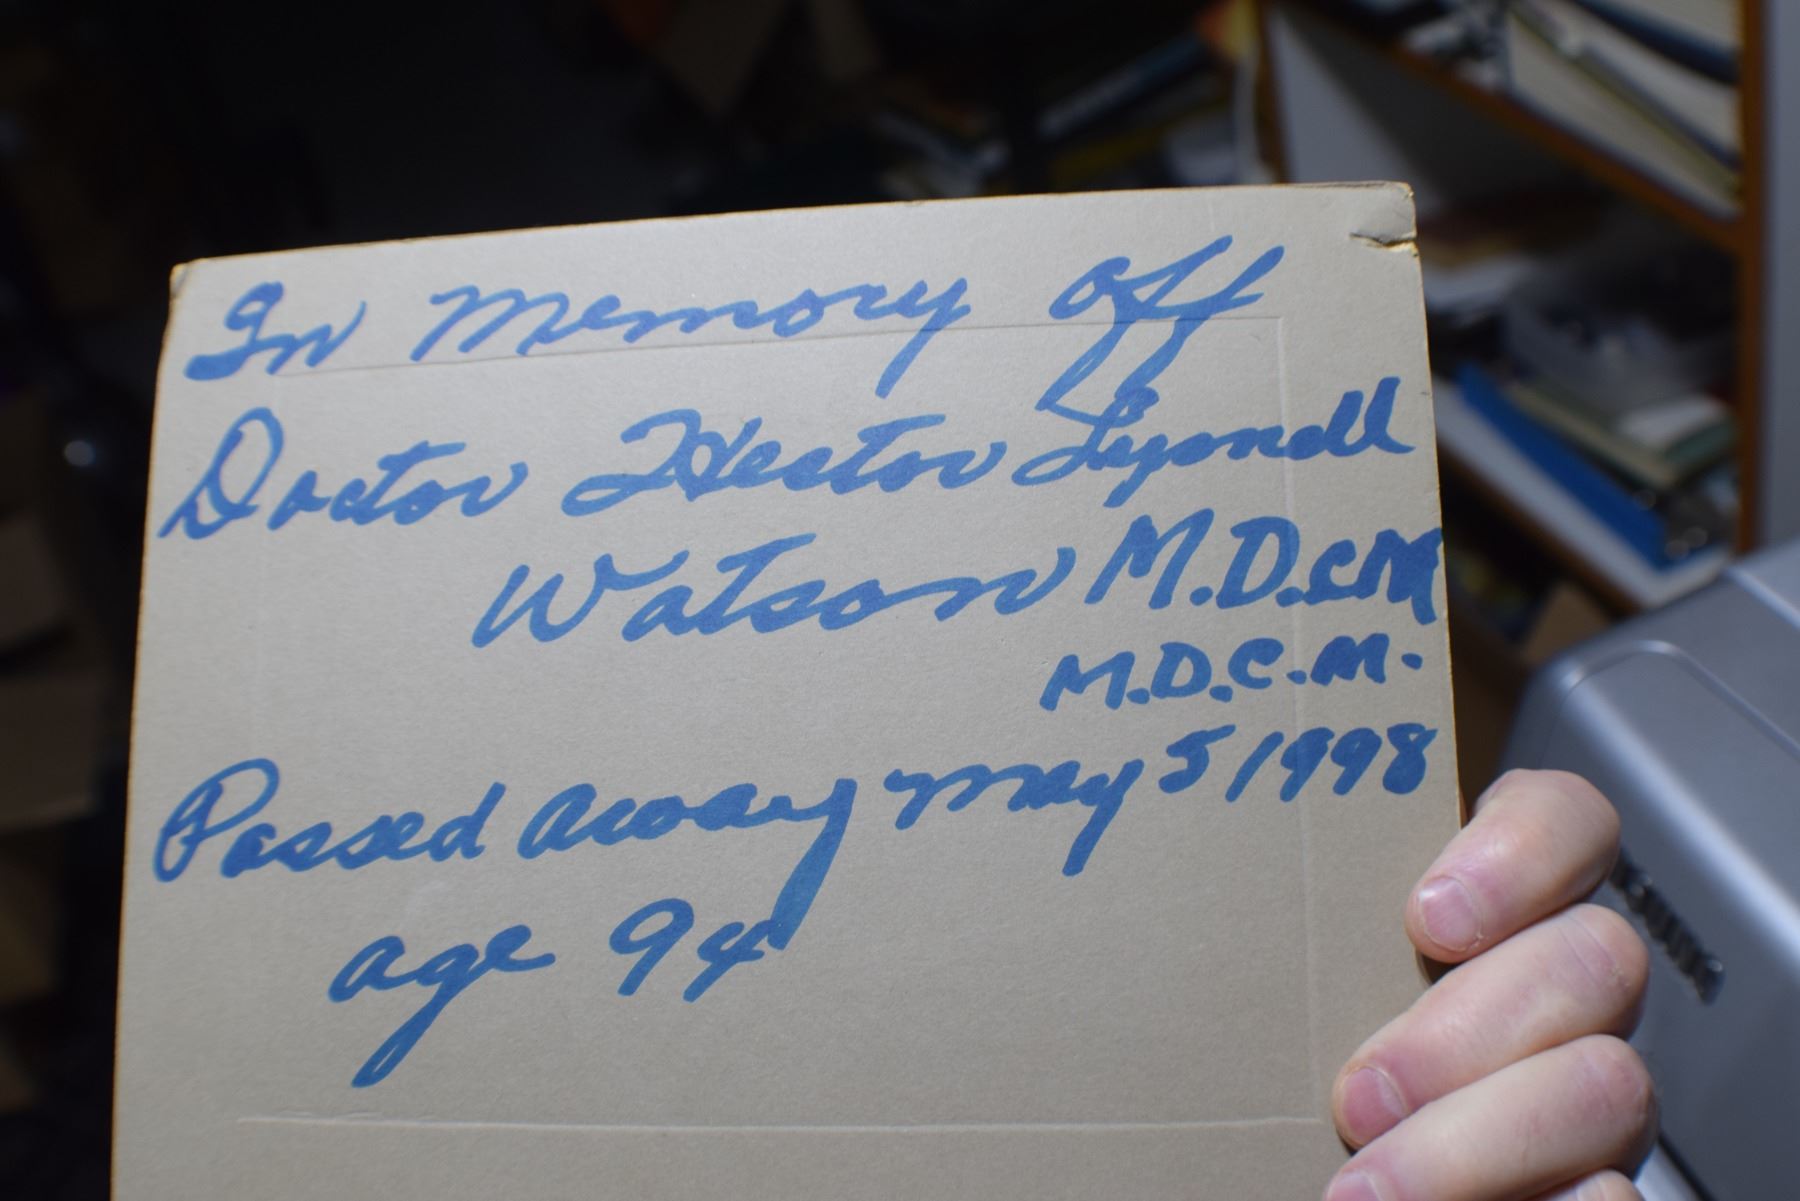 In Memory off
Doctor Hector Lyndll
Watson M.D.CM
M.D.C.M.
Passed away May 5 1998
age 94